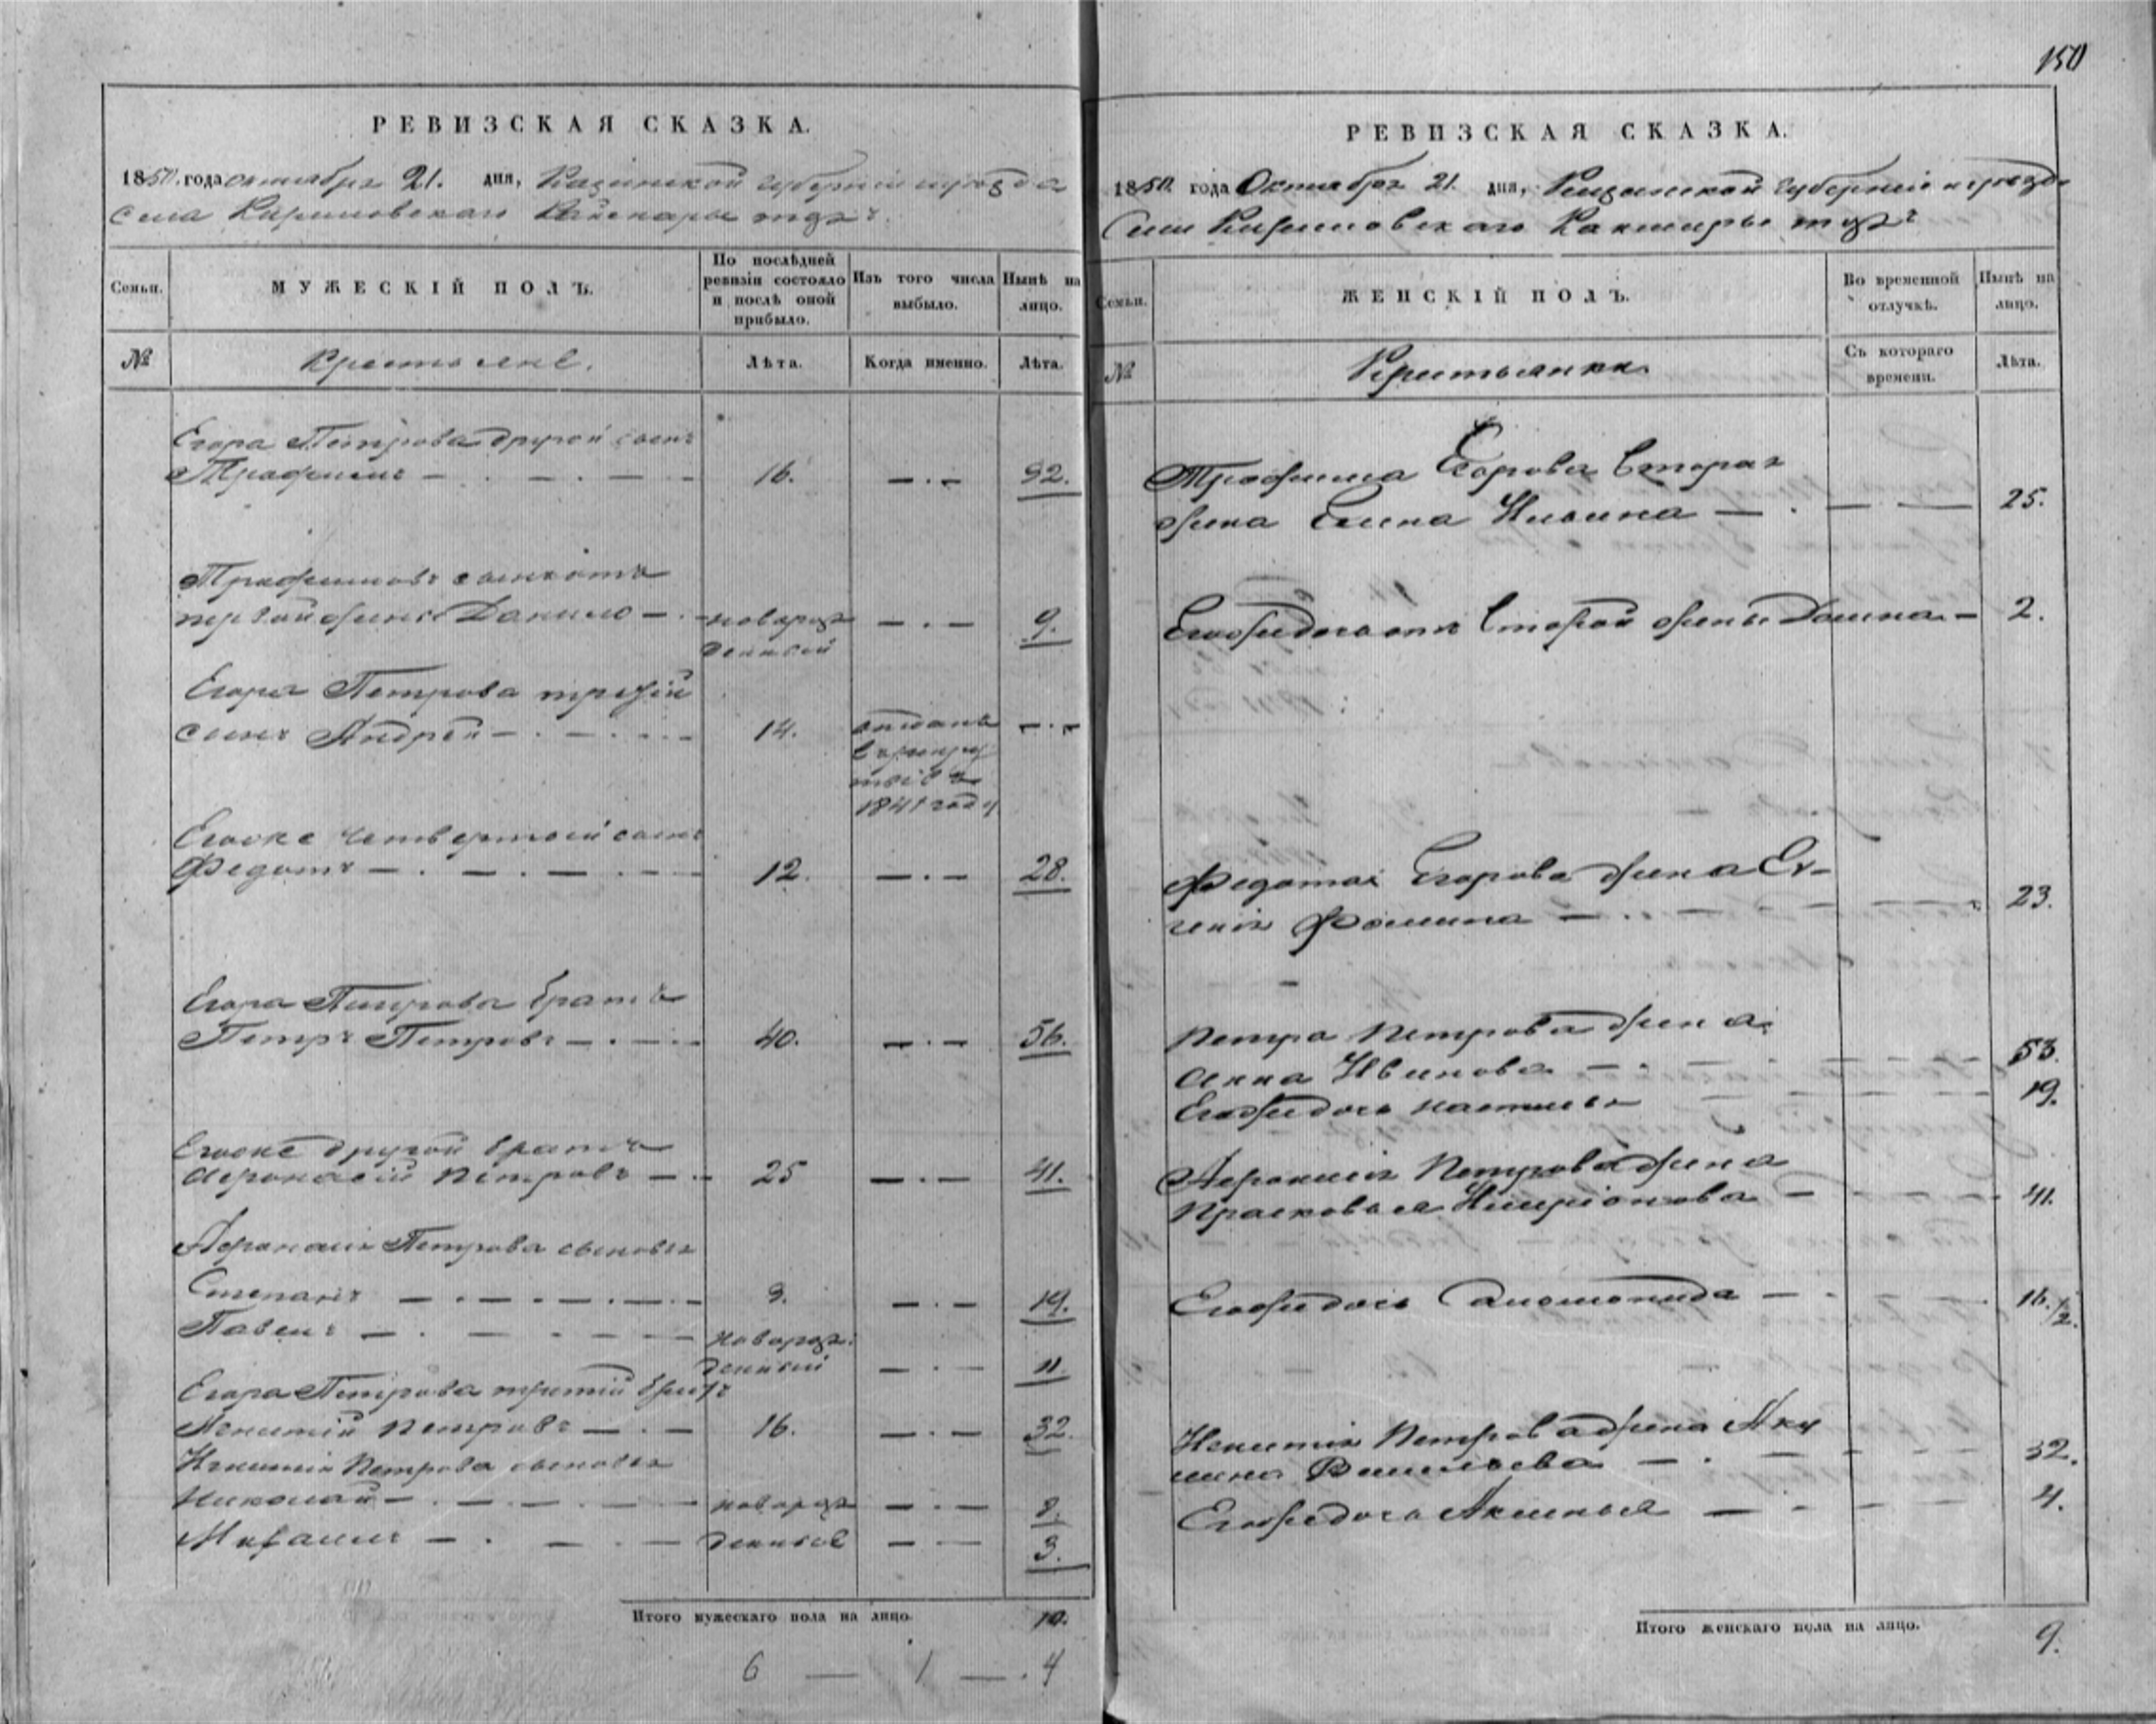 РЕВИЗСКАЯ СКАЗКА.
1850. года октября 21. дня, Казанской губерніи и уѣзда
Села
Семьи.
МУЖЕСКІЙ ПОЛЪ.
По послѣдней ревизіи состояло и послѣ оной прибыло.
Изъ того числа выбыло.
Нынѣ на лицо.
№
Крестьяне.
Лѣта.
Когда именно.
Лѣта.
Егора Петрова другой сынъ
Трофимъ — 16. — 32.
Трофимовъ сынъ отъ
первой жены Данило — новорож 9.
денной
Егора Петрова третій
сынъ Андрей — 14. отданъ
в рекру
1841 году
Егоже четвертой сынъ
Федотъ — 12. — 28.
Егора Петрова братъ
Петръ Петровъ — 40. — 56.
Егоже другой братъ
Афонасій Петровъ — 25 — 41.
Афонасія Петрова сыновья
Степанъ — 3. — 19.
Павелъ — новорож
денный — 11
Егора Петрова третій братъ
Петровъ — 16. — 32.
Петрова сыновья
Николай — новорож — 8.
Михаилъ — денные — 3.
Итого мужескаго пола на лицо. 10.
6 — 1 — 4
150
РЕВИЗСКАЯ СКАЗКА.
1850. года Октября 21. дня, Казанской губерніи и уѣзда
Села
Семьи.
ЖЕНСКІЙ ПОЛЪ.
Во временной отлучкѣ.
Нынѣ на лицо.
№
Крестьянки
Съ котораго времени.
Лѣта.
Трофима Егорова вторая
жена Ильина — 25.
Егожедочь отъ второй жены Домна — 2.
Федота Егорова жена Ев-
генія Фомина — 23.
Петра Петрова жена
Анна Иванова — 53.
Егожедочь Настасья 19.
Афонасія Петрова жена
Прасковья — 41.
Егожедочь — 16. 1/2.
Петрова жена Аку
лина Васильева — 32.
Егожедочь Аксинья — 4.
Итого женскаго пола на лицо. 9.